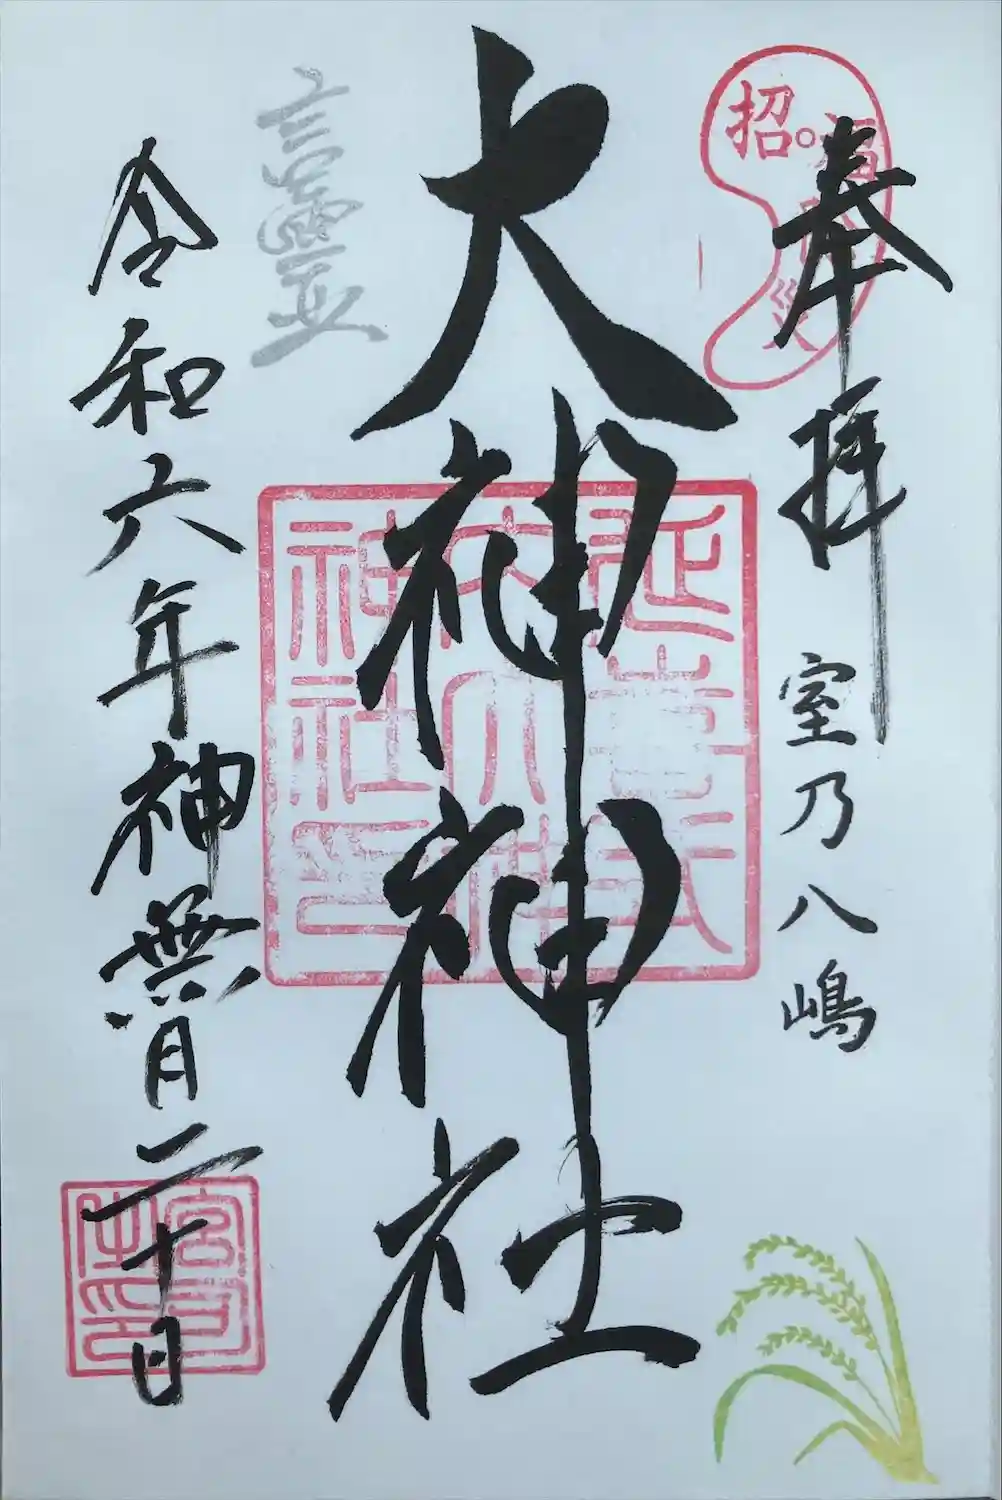 奉拝
室乃八嶋
招福除災
大神神社
延喜式内大神神社印
令和六年神無月二十日
宮司之印